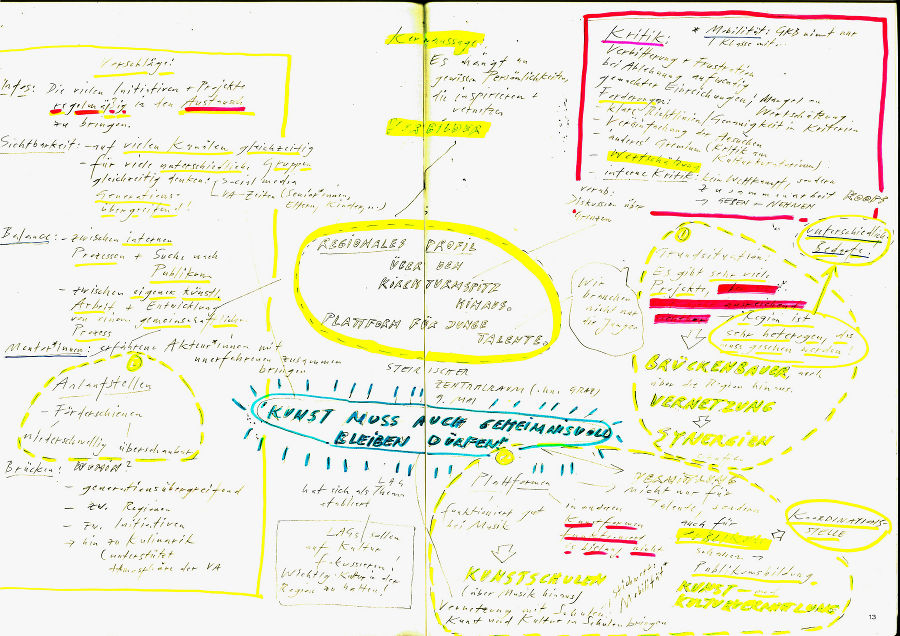 Vorschläge:
Infos: Die vielen Initiativen + Projekte
regelmäßig in den Austausch
zu bringen.
Sichtbarkeit: - auf vielen Kanälen gleichzeitig
- für viele unterschiedliche Gruppen
gleichzeitig denken: Social media
VA-Zeiten (Senior*innen,
Eltern, Kinder
Generations-
übergreifend!!
Balance: - zwischen internen
Prozessen + Suche nach
Publikum
- zwischen eigener künstl.
Arbeit + Entwicklung
von einem gemeinschaftlichen
Prozess
Mentor*innen: erfahrene Akteur*innen mit
unerfahrenen zusammen
bringen
Anlaufstellen
- Förderschienen
niederschwellig überschaubar
Brücken: WOHIN?
- generationsübergreifend
- zw. Regionen
- zw. Initiativen
- hin zu Kulinarik
(unterstützt
Atmosphäre der VA
Kernaussage:
Es hängt an
gewissen Persönlichkeiten,
die inspirieren +
vernetzen
VORBILDER
REGIONALES PROFIL
ÜBER DEN
KIRCHTURMSPITZ
HINAUS.
PLATTFORM FÜR JUNGE
TALENTE.
STEIRISCHER
ZENTRALRAUM (ohne GRAZ)
9. MAI
KUNST MUSS AUCH GEHEIMNISVOLL
BLEIBEN DÜRFEN!
LAG
hat sich als Thema
etabliert
LAGs sollen
auf Kultur
fokussieren!
Wichtig: Kultur in der
Region zu halten!
Kritik:
* Mobilität: GKB nimmt nur
1 Klasse mit.
Verbitterung + Frustration
bei Ablehnung aufwendig
gemachter Einreichungen; Mangel an
Wertschätzung
Forderungen:
- klare Richtlinien/Genauigkeit in Kriterien
- Vereinfachung der Ansuchen
- anderes Gremium (Kritik am
Kulturkuratorium)!
- Wertschätzung
- interne Kritik: kein Wettkampf, sondern
Zusammenarbeit
→ GEBEN und NEHMEN
Diskussion über
Wir
brauchen
nicht nur
die Jungen
unterschiedliche
Bedarfe
①
Grundsituation:
Es gibt sehr viele
Projekte
Region ist
sehr heterogen, das
muss gesehen werden!
BRÜCKENBAUER, auch
über die Region hinaus.
VERNETZUNG
SYNERGIEN
Plattformen
funktioniert gut
bei Musik
in anderen
Kunstformen
funktioniert
es bislang nicht
KUNSTSCHULEN
(über Musik hinaus)
Vernetzung mit Schulen
Kunst und Kultur in Schulen bringen
VERMITTLUNG
nicht nur für
Talente, sondern
auch für
PUBLIKUM
schaffen →
Publikumsbildung
KUNST- und
KULTURVERMITTLUNG
KOORDINATIONS-
STELLE
13